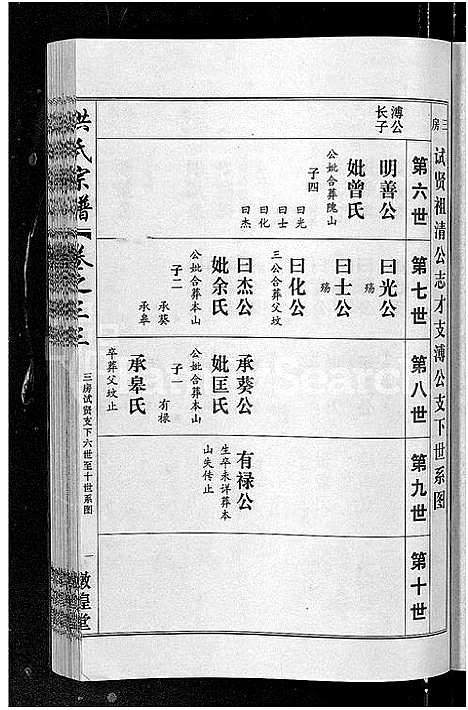 三房
试贤祖清公志才支溥公支下世系图
第六世
第七世
第八世
第九世
第十世
溥公
长子
明善公
妣曾氏
公妣合葬隗山
子四
曰光
曰士
曰化
曰杰
曰光公
殇
曰士公
殇
曰化公
三公合葬父坟
曰杰公
妣余氏
公妣合葬本山
子二
承葵
承皋
承葵公
妣匡氏
公妣合葬本山
子一
有禄
承皋氏
卒葬父坟止
有禄公
生卒未详葬本
山失传止
洪氏宗谱
卷之三三
三房试贤支下六世至十世系图
一
敦煌堂